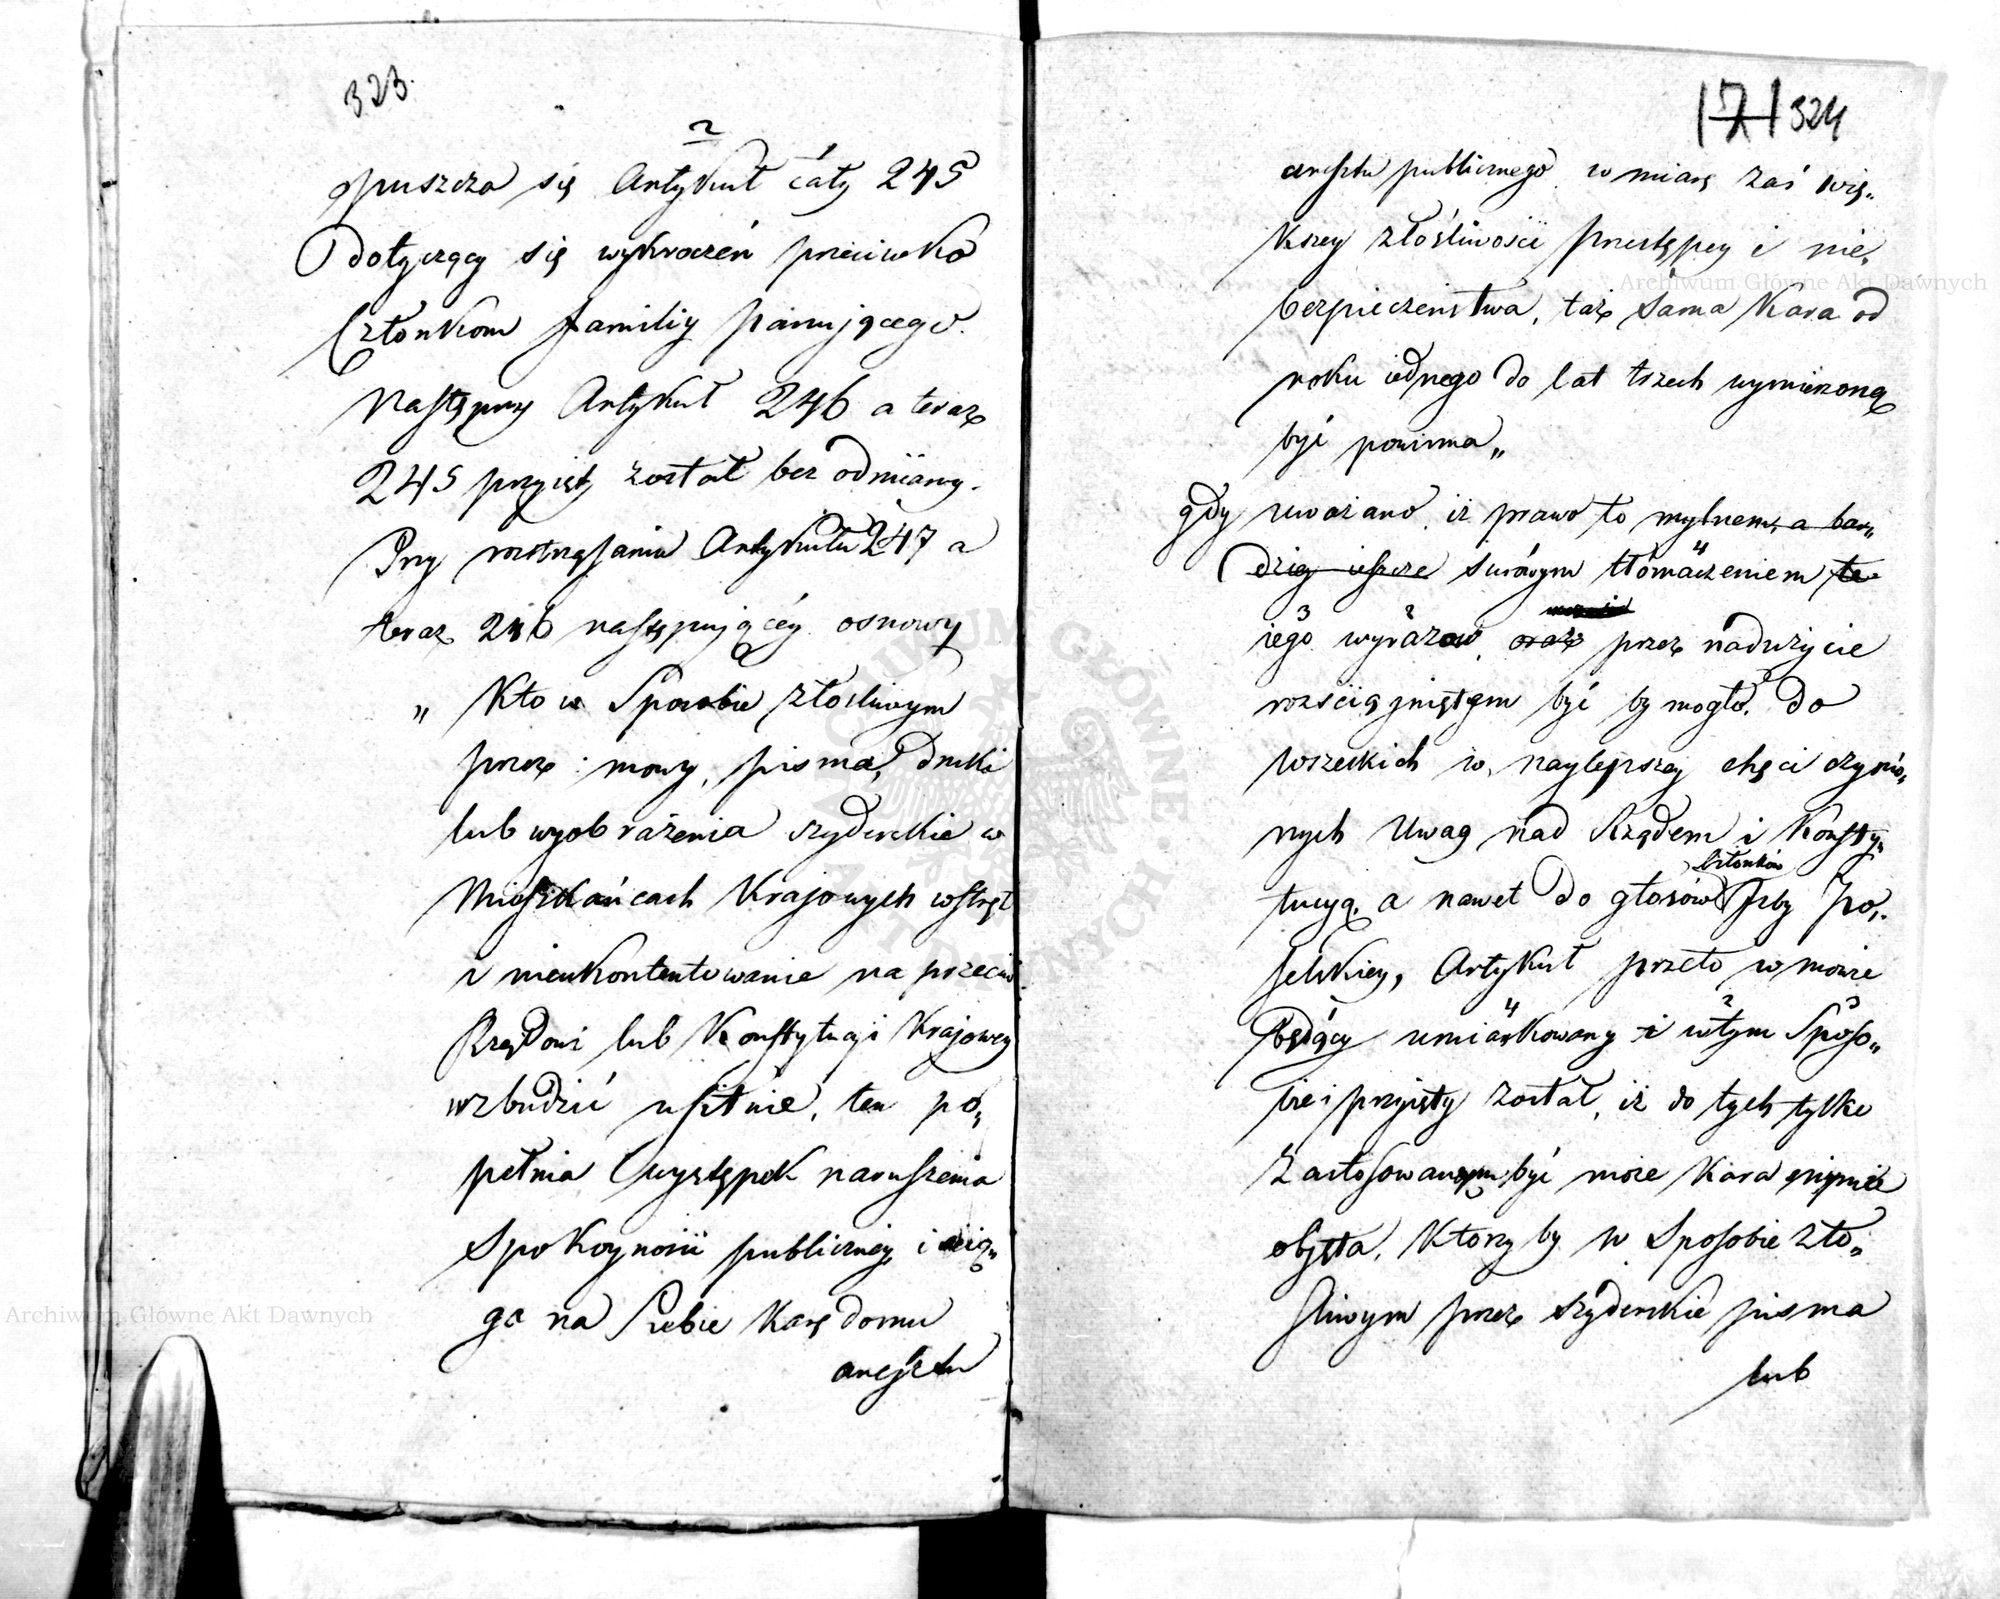 323.
2
opuszcza się Artykuł cały 245
Dotyczący się wykroczeń przeciwko
Członkom familiy panującego.
Następny Artykuł 246 a teraz
245 przyięty został bez odmiany.
Przy roztrząsaniu Artykułu 247 a
teraz 246 następuiącéy osnowy
„ Kto w Sposobie złośliwym
przez: mowy, pisma, druki
lub wyobrażenia szyderckie w
Mieszkańcach Krajowych wstręt
i nieukontentowanie na przeciw
Rządowi lub Konstytucji Krajowey
wzbudzić usiłuie, ten po„
pełnia występek naruszenia
Spokoynosci publiczney i ścią„
ga na Siebie karę domu
aresztu
171 324
aresztu publicznego w miarę zaś wię„
kszey złośliwości przestępcy i nie„
bezpieczeństwa, taż sama kara od
roku iednego do lat trzech wymierzoną
być powinna„
gdy uważano, iż prawo to mylnem, a bar„
dziey ieszcze surówym tłómaczeniem te
iego wyrazow, oraz przez nadużycie
rozsciągniętem być by mogło, do
wszelkich w naylepszey chęci czynio„
nych Uwag nad Rządem i Konsty„
tucyą, a nawet do głosów członków Izby Po„
selskiey, Artykuł przeto w mowie
będący umiarkowany i w tym Sposo„
bie przyięty został, iż do tych tylko
zastosowaną być może kara
objęta, którzy by w Sposobie zło„
sliwym przez szyderskie pisma
lub
Archiwum Główne Akt Dawnych
Archiwum Główne Akt Dawnych